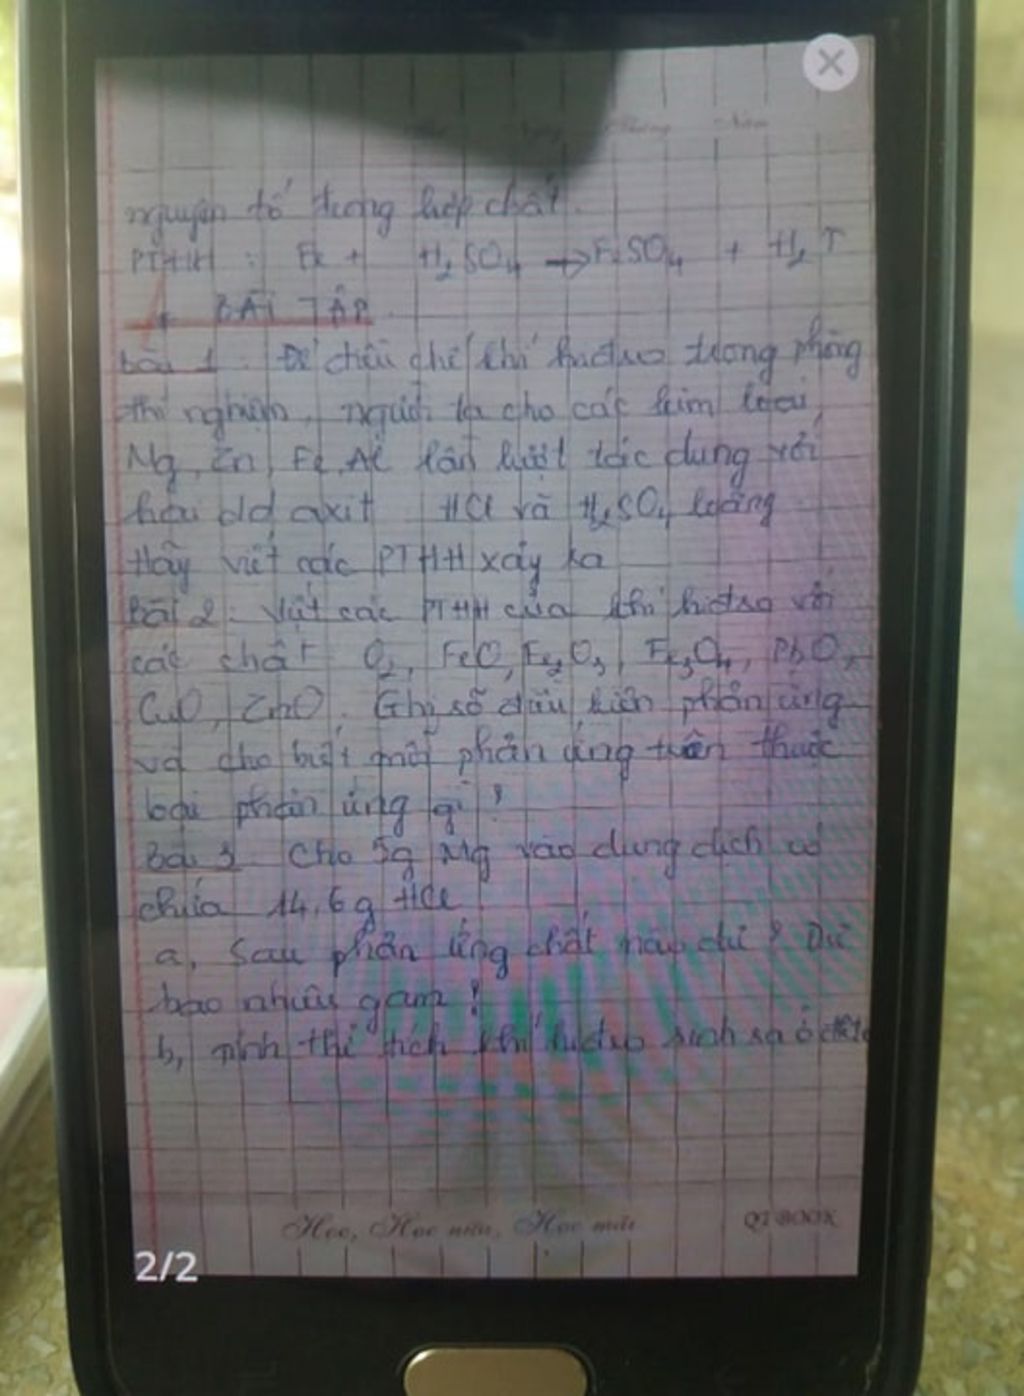 Tháng Năm
nguyên tố trong hợp chất.
PTHH : Fe + H₂SO₄ → FeSO₄ + H₂ ↑
* BÀI TẬP
bài 1. Để điều chế khí hiđro trong phòng
thí nghiệm, người ta cho các kim loại
Mg, Zn, Fe, Al lần lượt tác dụng với
hai dd axit HCl và H₂SO₄ loãng
Hãy viết các PTHH xảy ra
Bài 2: Viết các PTHH của khí hiđro với
các chất O₂, FeO, Fe₂O₃, Fe₃O₄, PbO,
CuO, ZnO. Ghi số điều kiện phản ứng
và cho biết mỗi phản ứng trên thuộc
loại phản ứng gì?
Bài 3. Cho 5g Mg vào dung dịch có
chứa 14,6g HCl
a, Sau phản ứng chất nào dư? Dư
bao nhiêu gam?
b, Tính thể tích khí hiđro sinh ra ở đktc
Học, Học nữa, Học mãi QT BOOK
2/2